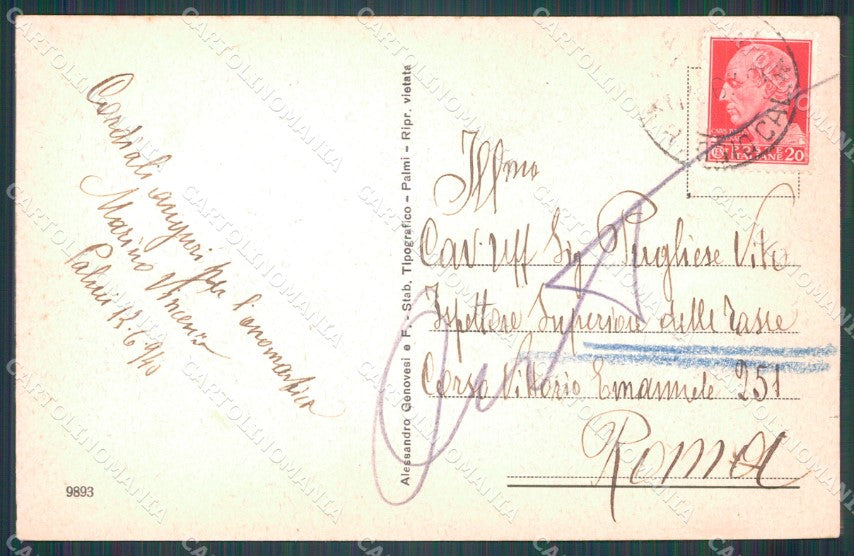 Cordiali auguri per l'onomastico
Marino Vincenzo
Palmi 12-6-940
9893
Alessandro Genovesi e F. - Stab. Tipografico - Palmi - Ripr. vietata
POSTE
ITALIANE 20
Illmo
Cav. Uff Sig Pugliese Vito
Ispettore Superiore delle Tasse
Corso Vittorio Emanuele 251
Roma
CARTOLINOMANIA